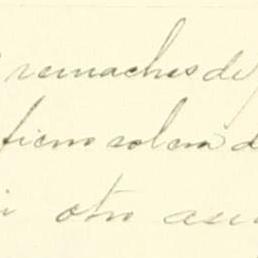 remaches de
fierro solera d
i otro asu